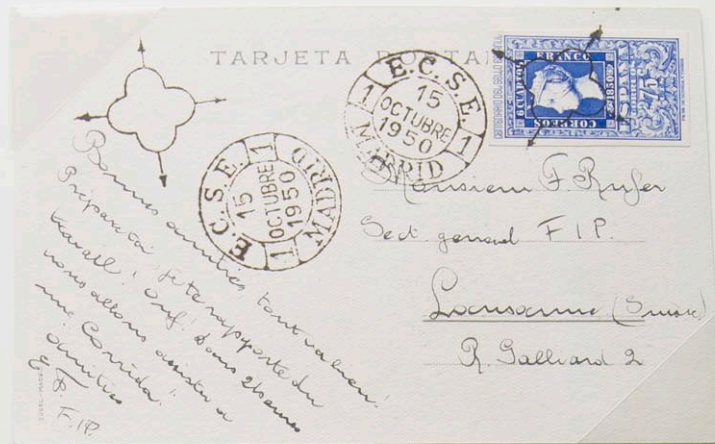 TARJETA POSTAL
E.C.S.E.
15
OCTUBRE
1950
1 1
MADRID
E.C.S.E.
15
OCTUBRE
1950
1 1
MADRID
6 CUARTOS
FRANCO
CORREOS
1850
ESPAÑA
75
Monsieur F Rufer
Sect general F I P.
Lausanne (Suisse)
R. Galliard 2
Bonnes amitiés, tout va bien!
Prépare toi, je te rapporte du
travail! Ouf! Dans 2 heures
nous allons assister a
une Corrida!
Amitiés
F.I.P.